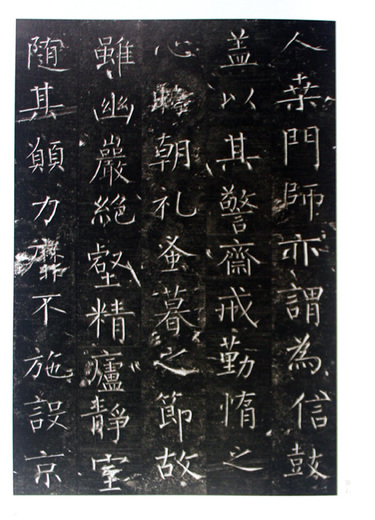 人桒門師亦謂為信鼓
盖以其警齋戒勤惰之
心朝礼蚤暮之節故
雖幽巖絕壑精廬靜室
随其願力不施設京